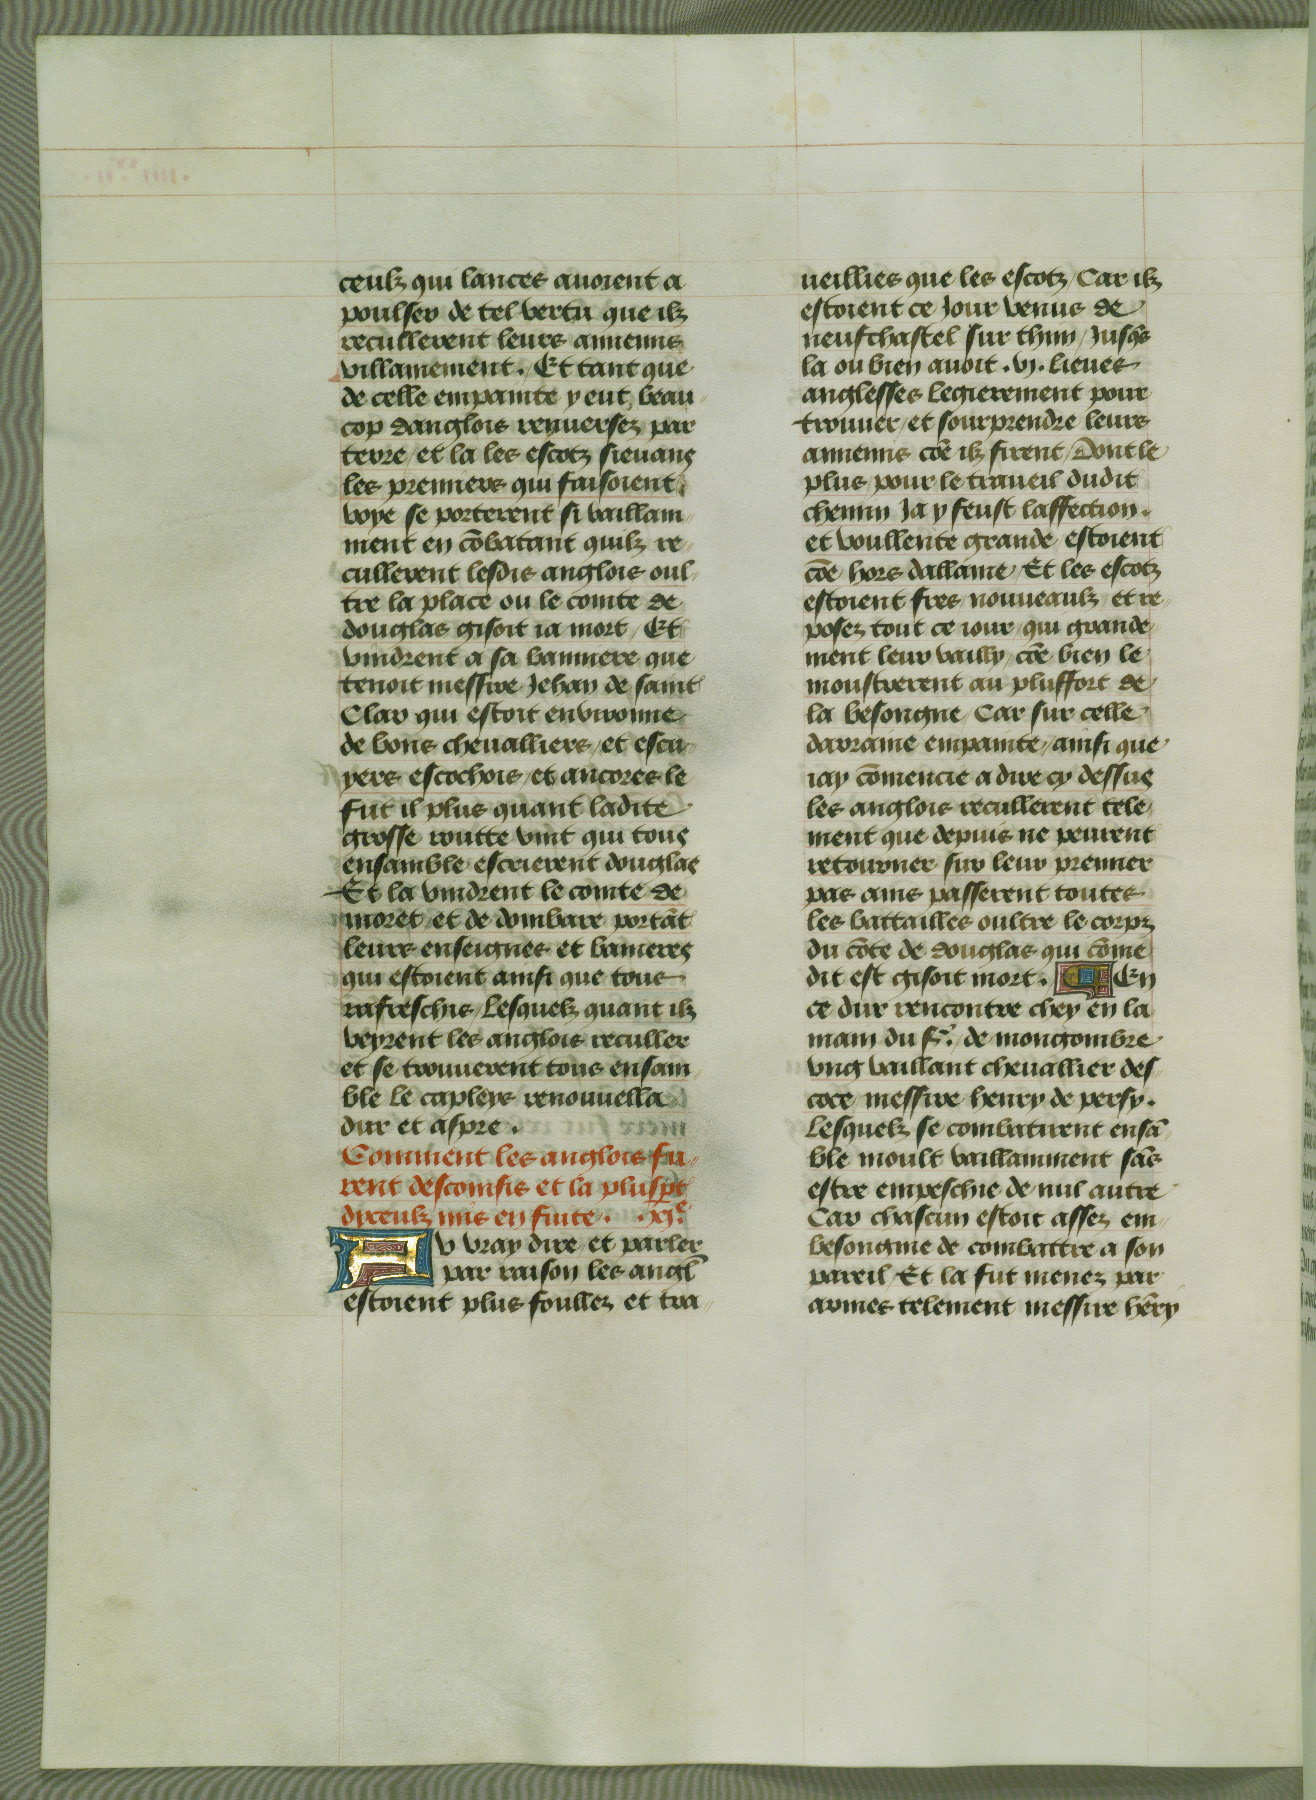 ceulz qui lances auoient a
poulser de tel vertu que ilz
recullerent leurs annemis
villainement. Et tant que
de celle empainte y eut beau
cop danglois renuersez par
terre / et la les escotz sieuans
les premiers qui faisoient
voye se porterent si vaillam
ment en cõbatant quilz re
cullerent lesdis anglois oul
tre la place ou le comte de
douglas gisoit ia mort / Et
vindrent a sa banniere que
tenoit messire Jehan de saint
Clar qui estoit enuironne
de bons cheualliers / et escu
yers escochois / et ancores le
fut il plus quant ladite
grosse routte vint qui tous
ensamble escrierent douglas
Et la vindrent le comte de
moret / et de dombare portãt
leurs enseignes et banieres
qui estoient ainsi que tous
rafreschis / Lesquelz quant ilz
veyrent les anglois reculler
et se trouuerent tous ensam
ble le capleys renouuella
dur et aspre .
Comment les anglois fu
rent desconfis et la pluspt
dyceulz mis en fuite . .xj.e
A v vray dire / et parler
par raison les angl
estoient plus foullez et tra
ueillies que les escotz / Car ilz
estoient ce Jour venus de
neufchastel sur thin / Jusqs
la ou bien auoit .vj. lieues
anglesses legierement pour
trouuer / et sourprendre leurs
annemis cõe ilz firent / Dont le
plus pour le traueil dudit
chemin Ja y feust laffection .
et voullente grande / estoient
cõe hors dallaine / Et les escotz
estoient fres / nouueaulz / et re
posez tout ce iour / qui grande
ment leur vailly / cõe bien le
moustrerent au plusfort de
la besongne / Car sur celle
darraine empainte / ainsi que
iay cõmencie a dire cy dessus
les anglois recullerent tele
ment que depuis ne peurent
retourner sur leur premier
pas ains passerent toutes
les battailles oultre le corpz
du cõte de douglas qui cõme
dit est gisoit mort . En
ce dur rencontre chey en la
main du sr. de mongombre
vng vaillant cheuallier des
coce / messire henry de persy .
Lesquelz se combatirent ensã
ble moult vaillamment sãs
estre empeschie de nul autre
Car chascun estoit assez em
besongnie de combattre a son
pareil / Et la fut menez par
armes telement messire hẽry